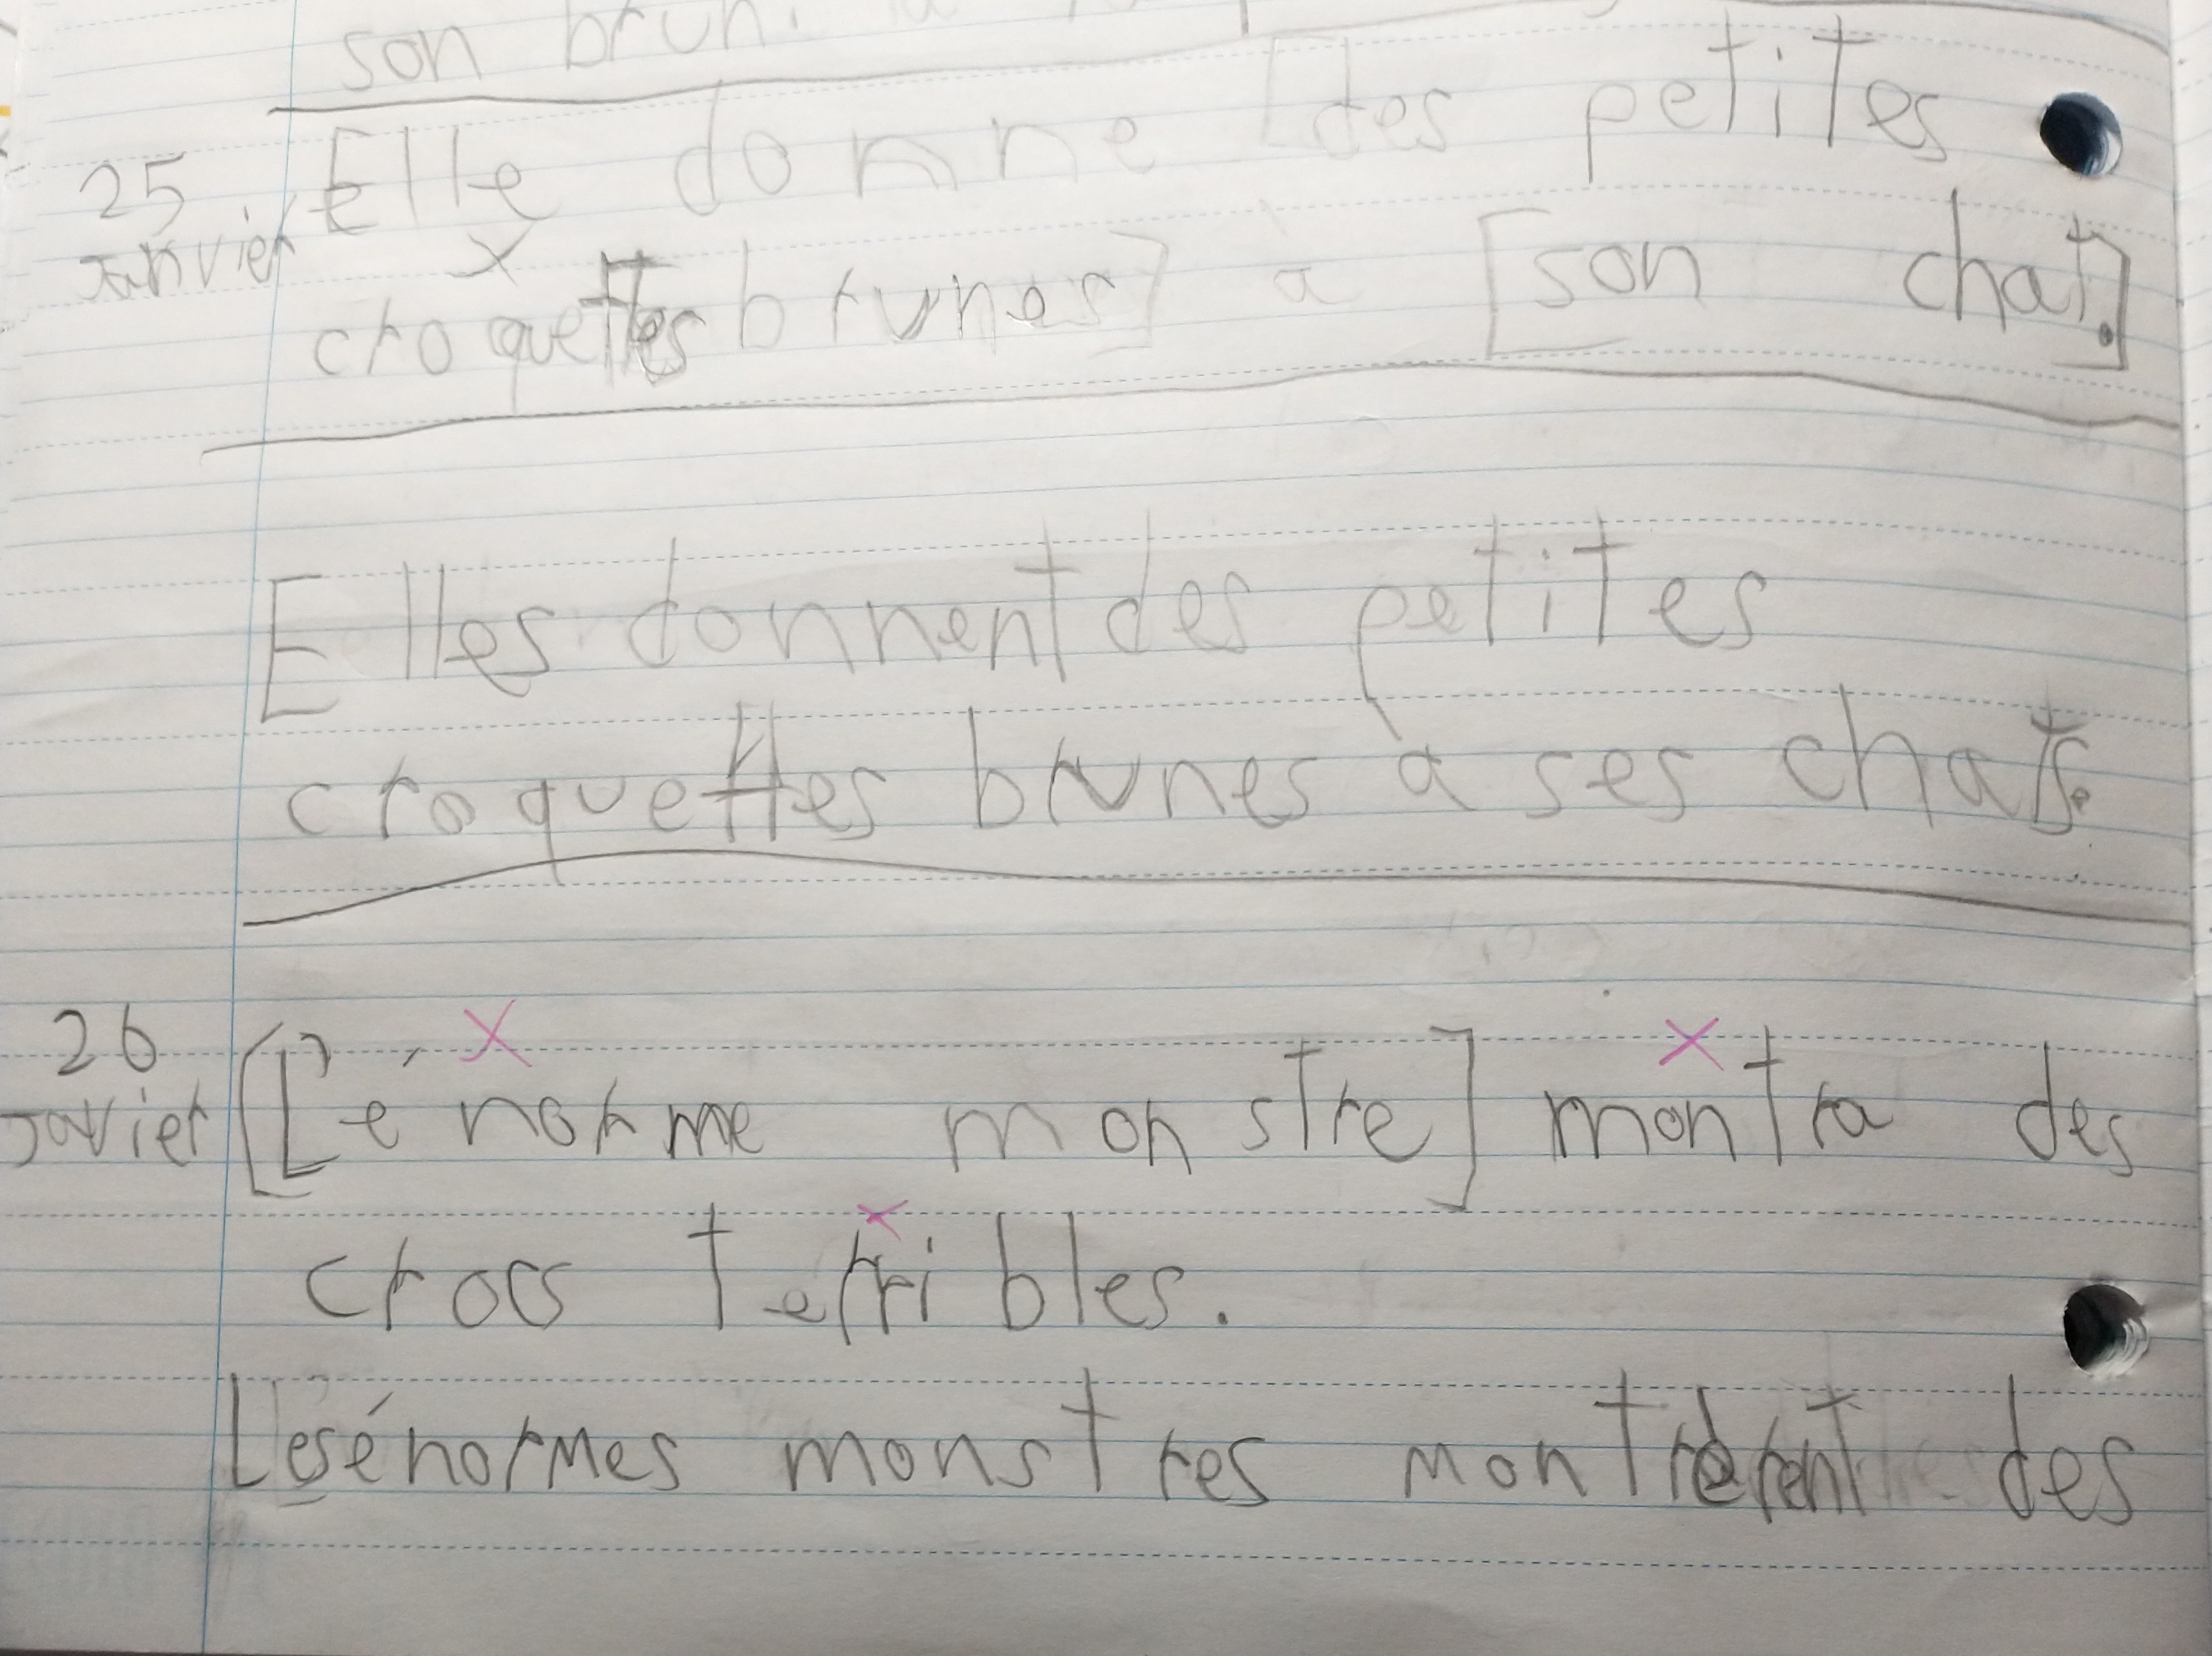 son brun.
25 Elle donne [des petites
janvier croquettes brunes] à [son chat.]
Elles donnent des petites
croquettes brunes à ses chats.
26 [L'énorme monstre] montra des
javier crocs terribles.
Les énormes monstres montrèrent des